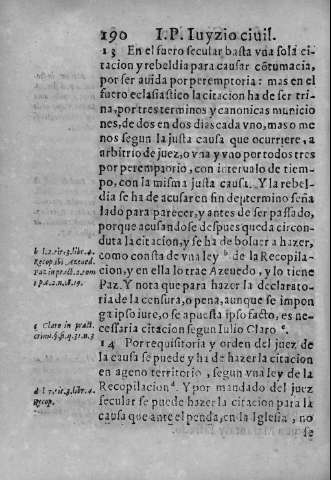 190 I.P. Iuyzio ciuil.
13 En el fuero secular basta vna sola ci
tacion y rebeldia para causar cõtumacia,
por ser auida por peremptoria: mas en el
fuero eclasiastico la citacion ha de ser tri
na, por tres terminos y canonicas municio
nes, de dos en dos dias cada vno, mas o me
nos segun la justa causa que ocurriere, a
arbitrio de juez, o vna y vno por todos tres
por peremptorio, con interualo de tiem-
po, con la misma justa causa. Y la rebel-
dia se ha de acusar en fin del termino seña
lado para parecer, y antes de ser passado,
porque acusandose despues queda circon-
duta la citacion, y se ha de boluer a hazer,
como consta de vna ley b de la Recopila-
cion, y en ella lo trae Azeuedo, y lo tiene
Paz. Y nota que para hazer la declarato-
ria de la censura, o pena, aunque se impon
ga ipso iure, o se apuesta ipso facto, es ne-
cessaria citacion segun Iulio Claro c.
14 Por requisitoria y orden del juez de
la causa se puede y ha de hazer la citacion
en ageno territorio, segun vna ley de la
Recopilacion d. Y por mandado del juez
secular se puede hazer la citacion para la
causa que ante el penda, en la Iglesia, no
se
b l.2.tit.3.libr.4.
Recop. ibi Azeued.
Paz in pract. 2. tom
1 p.4. 2. n.18.19.
c Claro in pract.
crimi. §.fi. q.31.n.3
d l 7.tit.3.libr.4.
Recop.